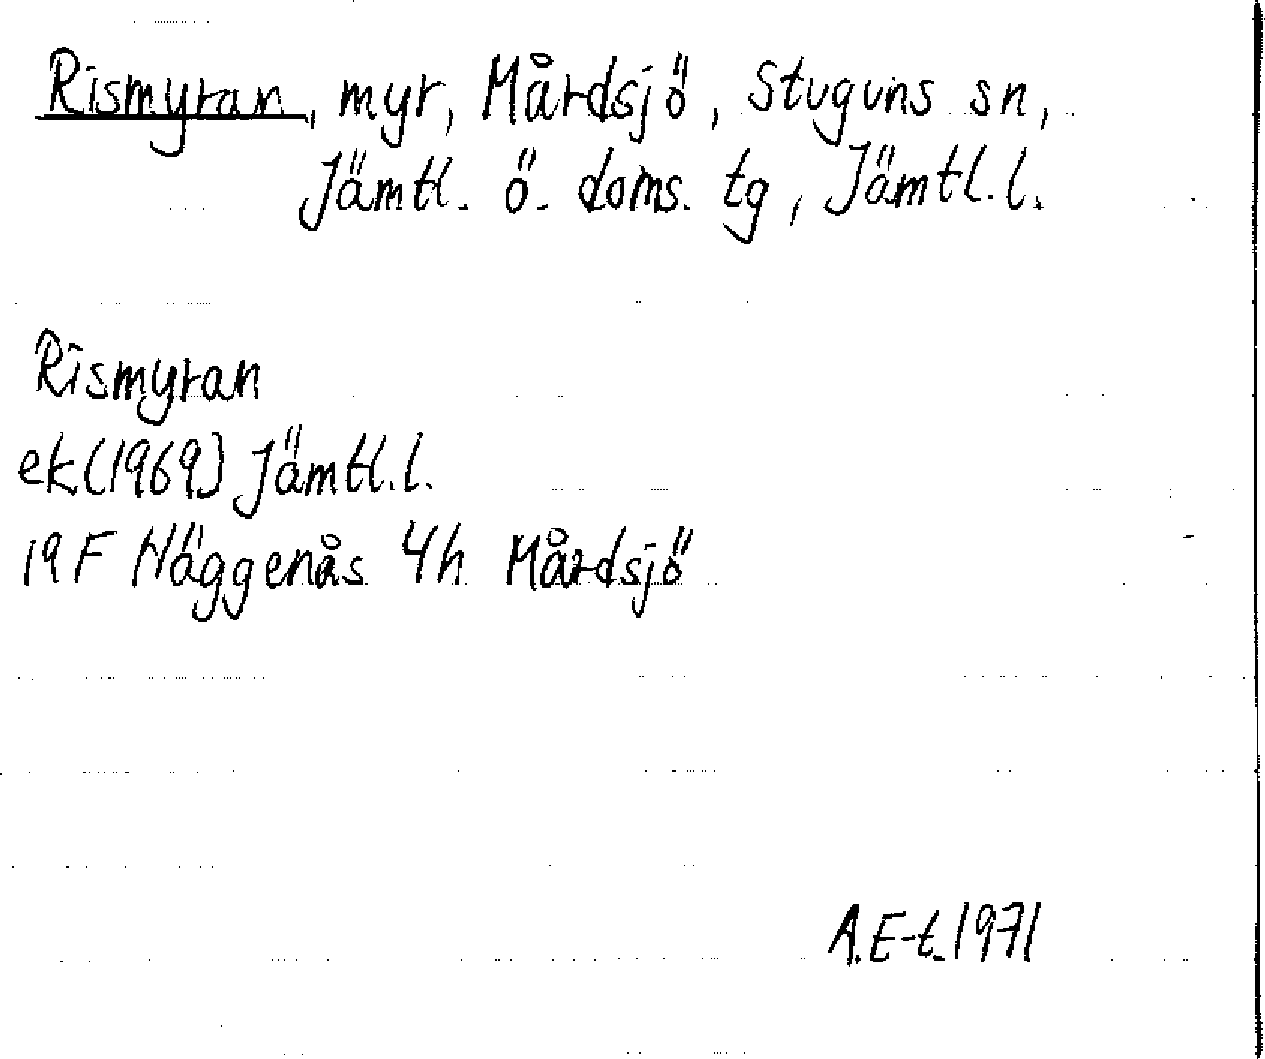 Rismyran, myr, Mårdsjö, Stuguns sn,
Jämtl. ö. doms. tg, Jämtl. l.
Rismyran
ek (1969) Jämtl. l.
19 F Häggenås 4h Mårdsjö
A. E-t. 1971